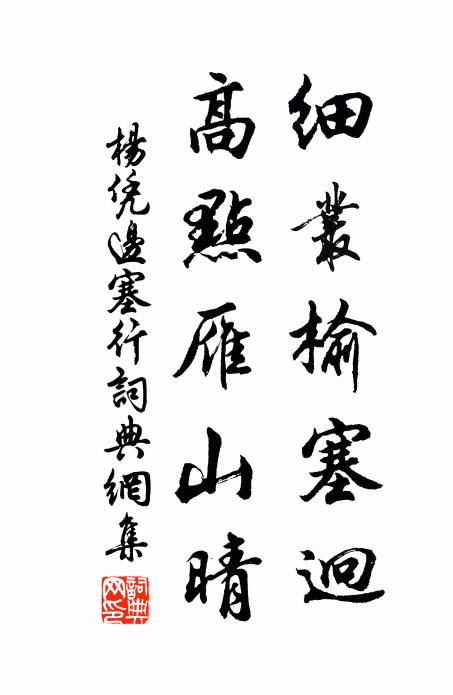 細叢榆塞迥
高點雁山晴
楊凭邊塞行詞典網集
詞典網印